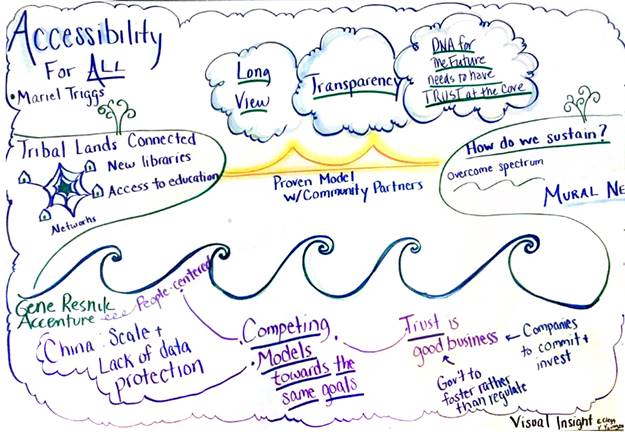 ACCESSIBILITY
FOR ALL
• Mariel Triggs
Long
View
Transparency
DNA for
the Future
needs to have
TRUST at the core
Tribal Lands Connected
New libraries
Access to education
Networks
Proven Model
w/Community Partners
How do we sustain?
Overcome spectrum
MURAL NE
Gene Resnik
Accenture
People-centered
China: Scale +
Lack of data
protection
Competing
Models
towards the
same goals
Trust is
good business
Companies
to commit +
invest
Gov't to
foster rather
than regulate
Visual Insight